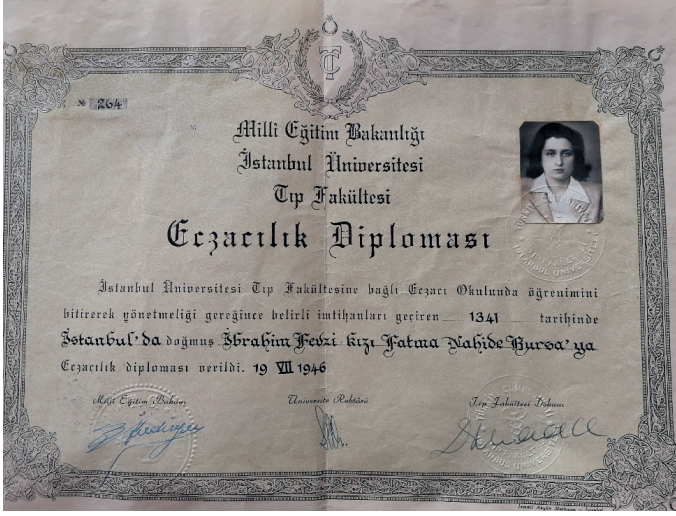 TC
№ 264
Millî Eğitim Bakanlığı
İstanbul Üniversitesi
Tıp Fakültesi
Eczacılık Diploması
İstanbul Üniversitesi Tıp Fakültesine bağlı Eczacı Okulunda öğrenimini
bitirerek yönetmeliği gereğince belirli imtihanları geçiren 1341 tarihinde
İstanbul'da doğmuş İbrahim Fevzi kızı Fatma Nahide Bursa'ya
Eczacılık diploması verildi. 19 VII 1946
Millî Eğitim Bakanı Üniversite Rektörü Tıp Fakültesi Dekanı